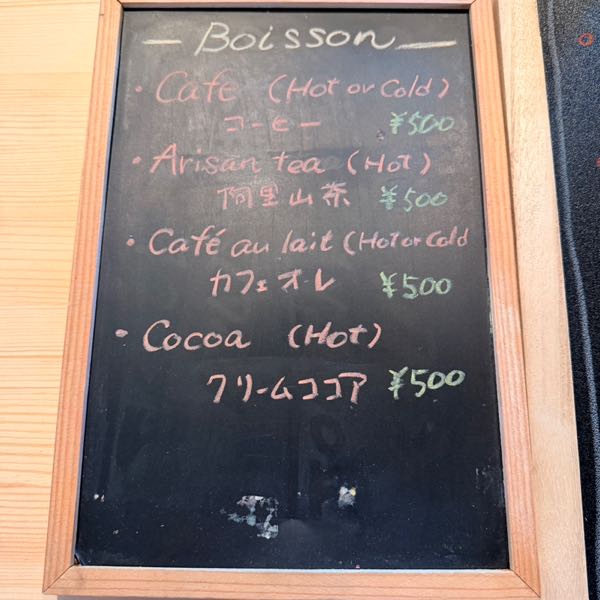 — Boisson —
・Café (Hot or Cold)
コーヒー ¥500
・Arisan tea (Hot)
阿里山茶 ¥500
・Café au lait (Hot or Cold
カフェオレ ¥500
・Cocoa (Hot)
クリームココア ¥500